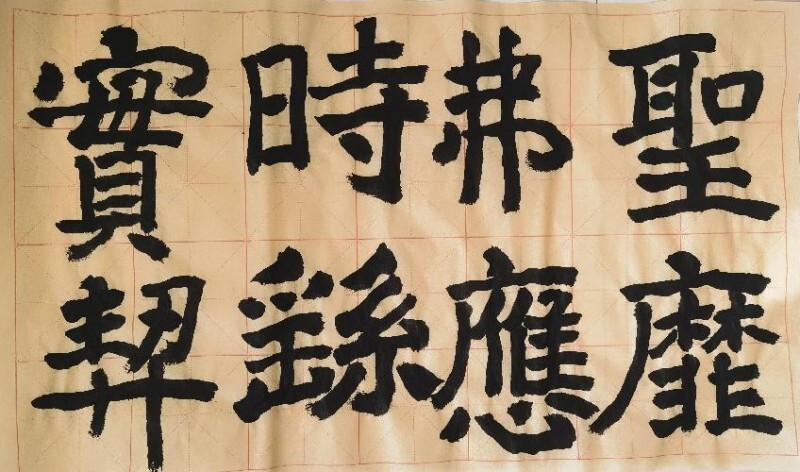 聖靡
弗應
時繇
實契